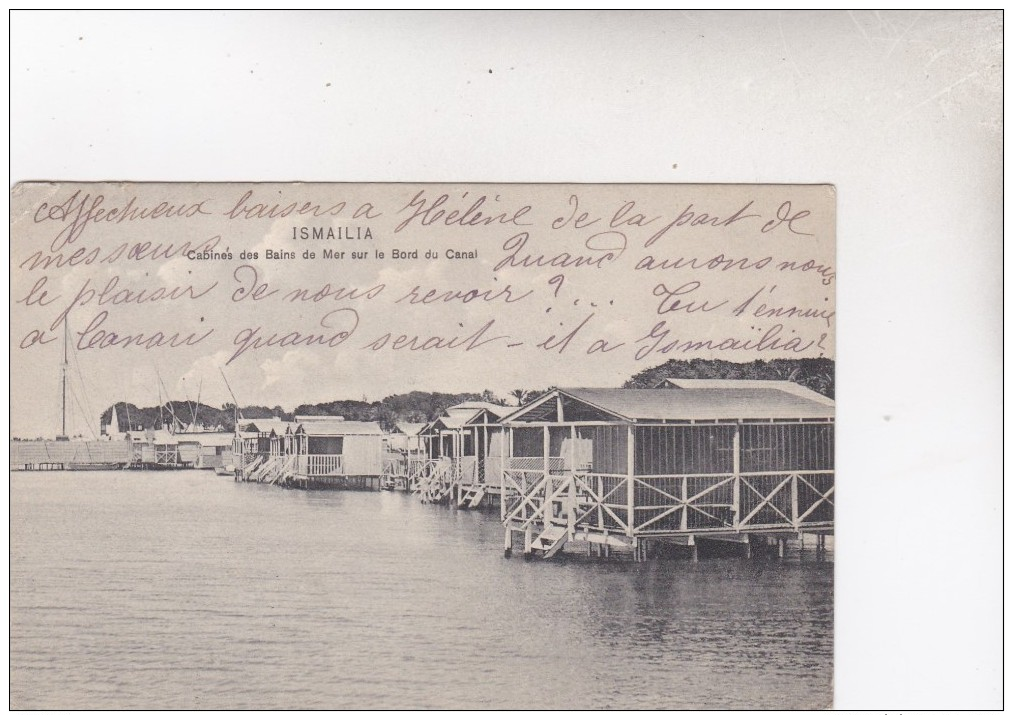 Affectueux baisers a Hélène de la part de
ISMAILIA
mes sœurs
Cabines des Bains de Mer sur le Bord du Canal
Quand aurons nous
le plaisir de nous revoir ? ... Tu t'ennuie
a Canari quand serait-it a Ismaïlia?